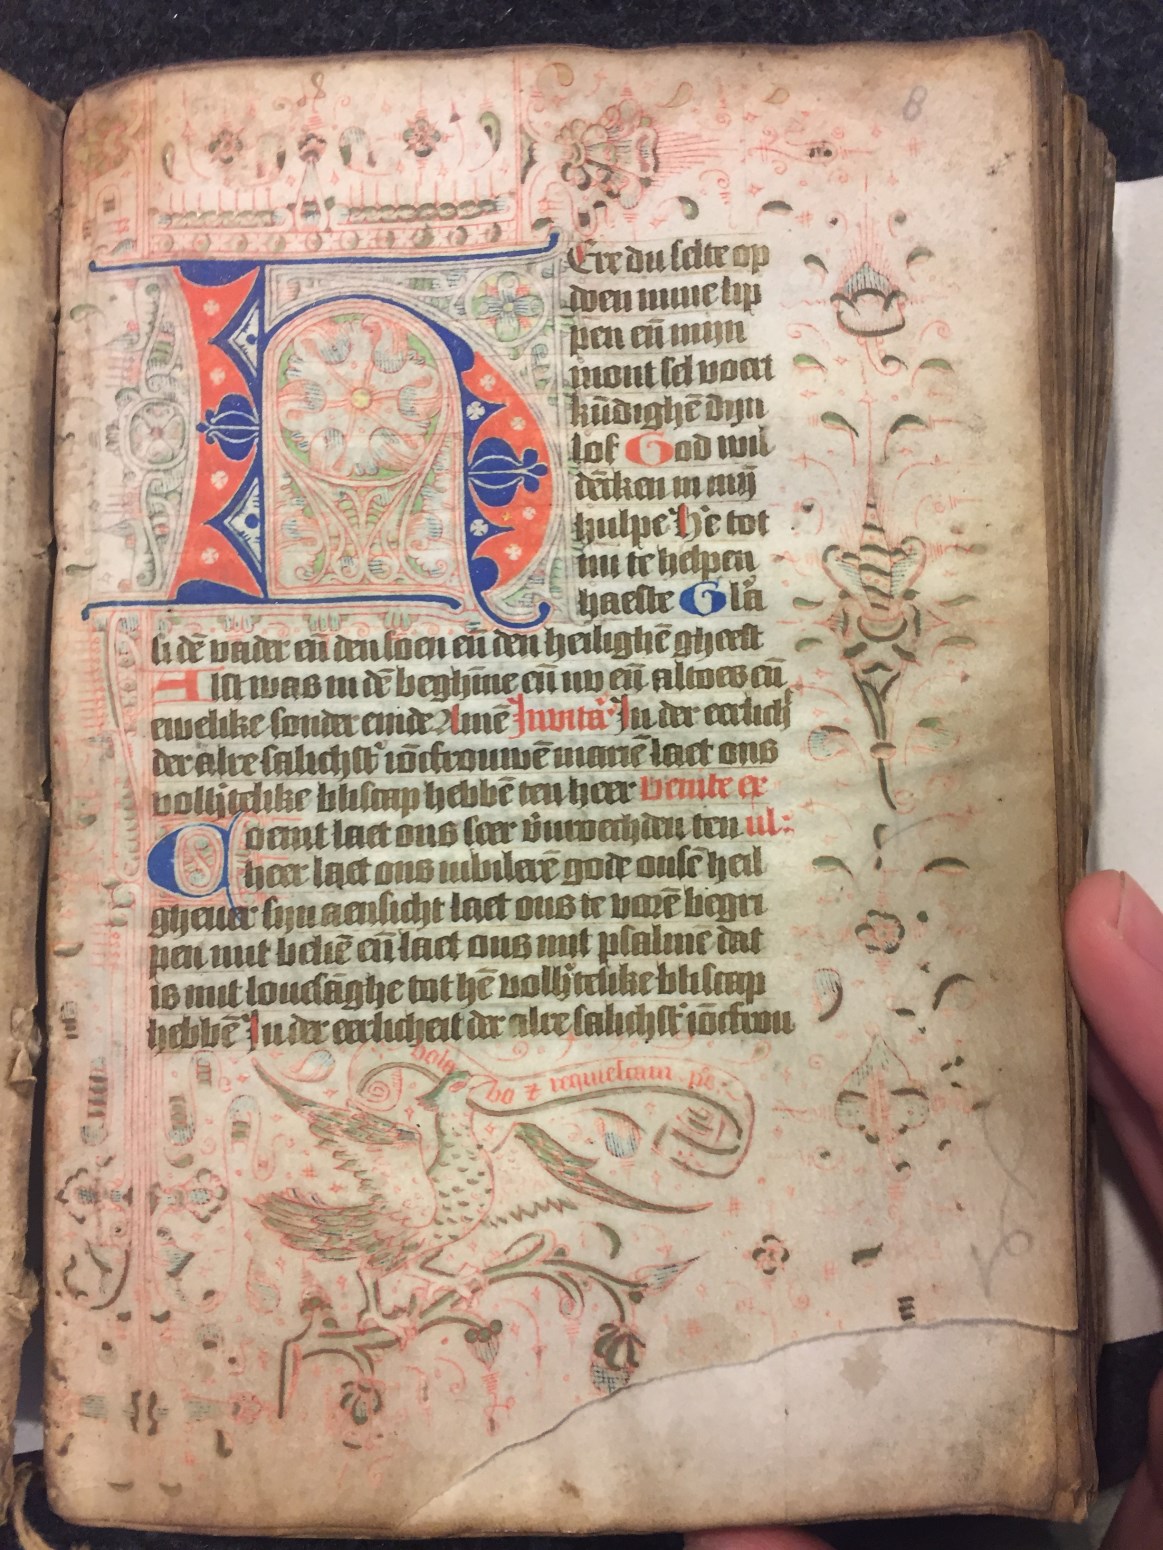 8
HEre du selte op
doen mine lip
pen eñ mijn
mont sel voert
kūdighē dijn
lof God wil
dēken in mijn
hulpe He tot
mi te helpen
haeste Glā
si dē vader eñ den soen eñ den heilighē gheest
Alst was in dē beghīne eñ nv eñ altoes eñ
ewelike sonder einde Amē Invita In der eerlich
der alre salichst ioncfrouwē mariē laet ons
blijscap hebbē den heer Venite ex
Coemt laet ons seer den ul:
heer laet ons iubilerē gode onsē heil
gheuer sijn aensicht laet ons te vorē begri
pen mit belien eñ laet ons mit psalmē dat
is mit loefsāghe tot hē blijscap
hebbē In der eerlicheit der alre salichst ioncfrou
vola
bo ⁊ requiescam ps